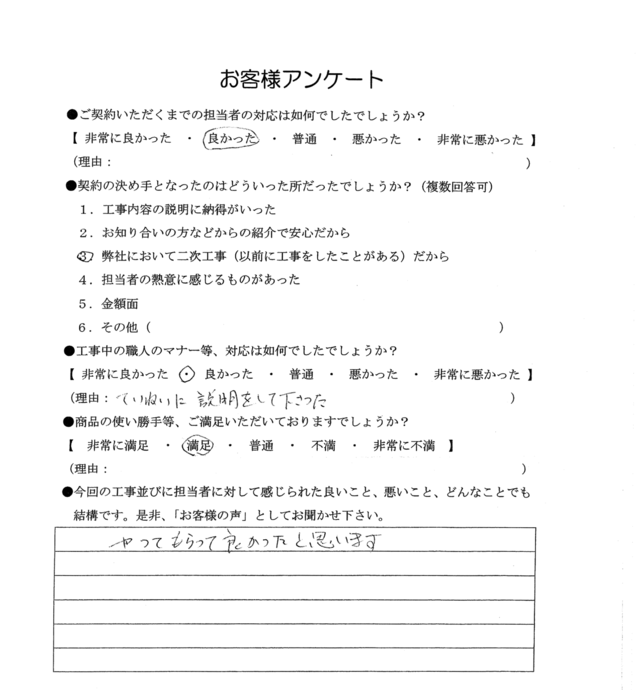 お客様アンケート
●ご契約いただくまでの担当者の対応は如何でしたでしょうか？
【 非常に良かった ・ 良かった ・ 普通 ・ 悪かった ・ 非常に悪かった 】
(理由： )
●契約の決め手となったのはどういった所だったでしょうか？（複数回答可）
１．工事内容の説明に納得がいった
２．お知り合いの方などからの紹介で安心だから
③ 弊社において二次工事（以前に工事をしたことがある）だから
４．担当者の熱意に感じるものがあった
５．金額面
６．その他（ ）
●工事中の職人のマナー等、対応は如何でしたでしょうか？
【 非常に良かった ・ 良かった ・ 普通 ・ 悪かった ・ 非常に悪かった 】
(理由：ていねいに説明をして下さった )
●商品の使い勝手等、ご満足いただいておりますでしょうか？
【 非常に満足 ・ 満足 ・ 普通 ・ 不満 ・ 非常に不満 】
(理由： )
●今回の工事並びに担当者に対して感じられた良いこと、悪いこと、どんなことでも
結構です。是非、「お客様の声」としてお聞かせ下さい。
やってもらって良かったと思います